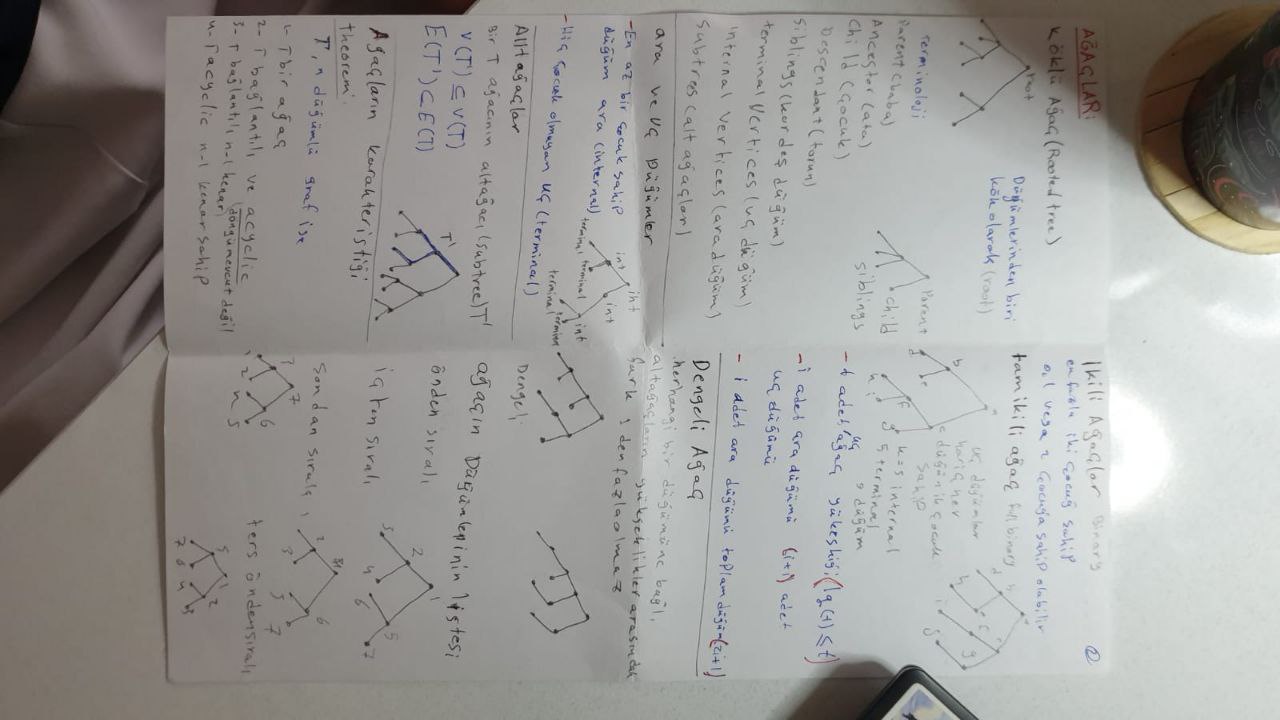 AĞAÇLAR:
Köklü Ağaç (Rooted tree)
root
Düğümlerinden biri
kök olarak (root)
Terminoloji
Parent (baba)
Ancester (ata)
Child (çocuk)
Descendant (torun)
Siblings (kardeş düğüm)
terminal Vertices (uç düğüm)
internal Vertices (ara düğüm)
Subtres (alt ağaçları)
Parent
child
siblings
ara ve Uç Düğümler
- En az bir çocuk sahip
düğüm ara (internal)
- Hiç çocuk olmayan uç (terminal)
int
int
int
int
terminal
terminal
terminal
Alt ağaçlar
Bir T ağacının altağacı (subtree) T'
V(T') ⊆ V(T)
E(T') ⊂ E(T)
T'
Ağaçların karakteristiği
theorem:
T, n düğümlü graf ise
1- T bir ağaç
2- T bağlantılı ve acyclic
(döngü mevcut değil
3- T bağlantılı, n-1 kenar
4- T acyclic n-1 kenar sahip
İkili Ağaçlar Binary
2
en fazla iki çocuğ sahip
0,1 veya 2 çocuğa sahip olabilir
tam ikili ağaç full binary
uç düğümler
hariç her
düğüm iki çocuk
sahip
4 internal
5 terminal
9 düğüm
- t adet uç ağaç yüksekliği (lg(t) ≤ t)
- i adet ara düğümü (i+1) adet
uç düğümü
- i adet ara düğümü toplam düğüm (2i+1)
Dengeli Ağaç
herhangi bir düğümüne bağlı,
altağaçların yükseklikler arasındaki
fark 1 den fazla olmaz
Dengeli
ağaçın Düğümlerinin listesi
önden sıralı
1
2
5
3
4
6
7
içten sıralı
2
6
1
3
5
7
sondan sıralı
7
3
6
1
2
4
5
ters önden sıralı
1
5
2
7
6
4
3